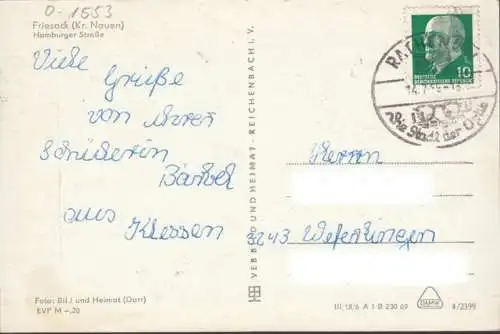 0-1553
Friesack (Kr. Nauen)
Hamburger Straße
Viele Grüße
von Ihrer
Schülerin
Bärbel
aus Klessen
Foto: Bild und Heimat (Darr)
EVP M -,20
VEB BILD UND HEIMAT · REICHENBACH I. V.
DEUTSCHE
DEMOKRATISCHE REPUBLIK
10
Die Stadt der Optik
Herrn
3243 Weferlingen
III/18/6 A 1 B 230 69
DAMW
4/2399